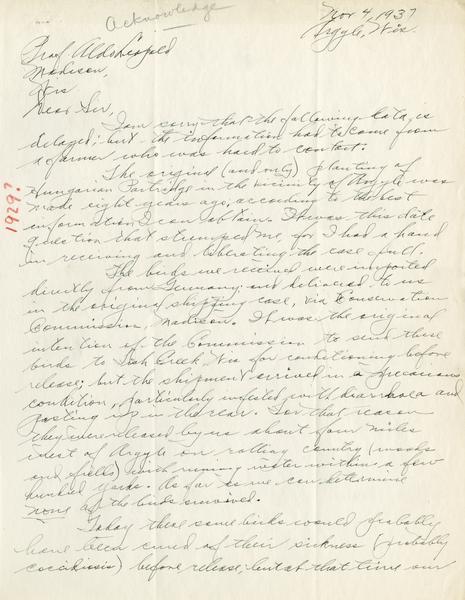 Acknowledge
Nov 4, 1937
Argyle, Wis.
Prof. Aldo Leopold
Madison,
Wis
Dear Sir,
I am sorry that the following data is
delayed; but the information had to come from
a farmer who was hard to contact.
The original (and only) planting of
Hungarian Partridge in the vicinity of Argyle was
made eight years ago, according to the best
information I can obtain. It was this date
1929?
question that stumped me, for I had a hand
in receiving and liberating the case full.
The birds we received were imported
directly from Germany; and delivered to us
in the original shipping case, via Conservation
Commission, Madison. It was the original
intention of the Commission to send these
birds to Fish Creek, Wis for conditioning before
release; but the shipment arrived in a precarious
condition, particularly infested with diarrhoea and
pasting up in the rear. For that reason
they were released by us about four miles
west of Argyle on rolling country (woods
and fields) with running water within a few
hundred yards. As far as we can determine
none of the birds survived.
Today these same birds would probably
have been cured of their sickness (probably
) before release; but at that time our